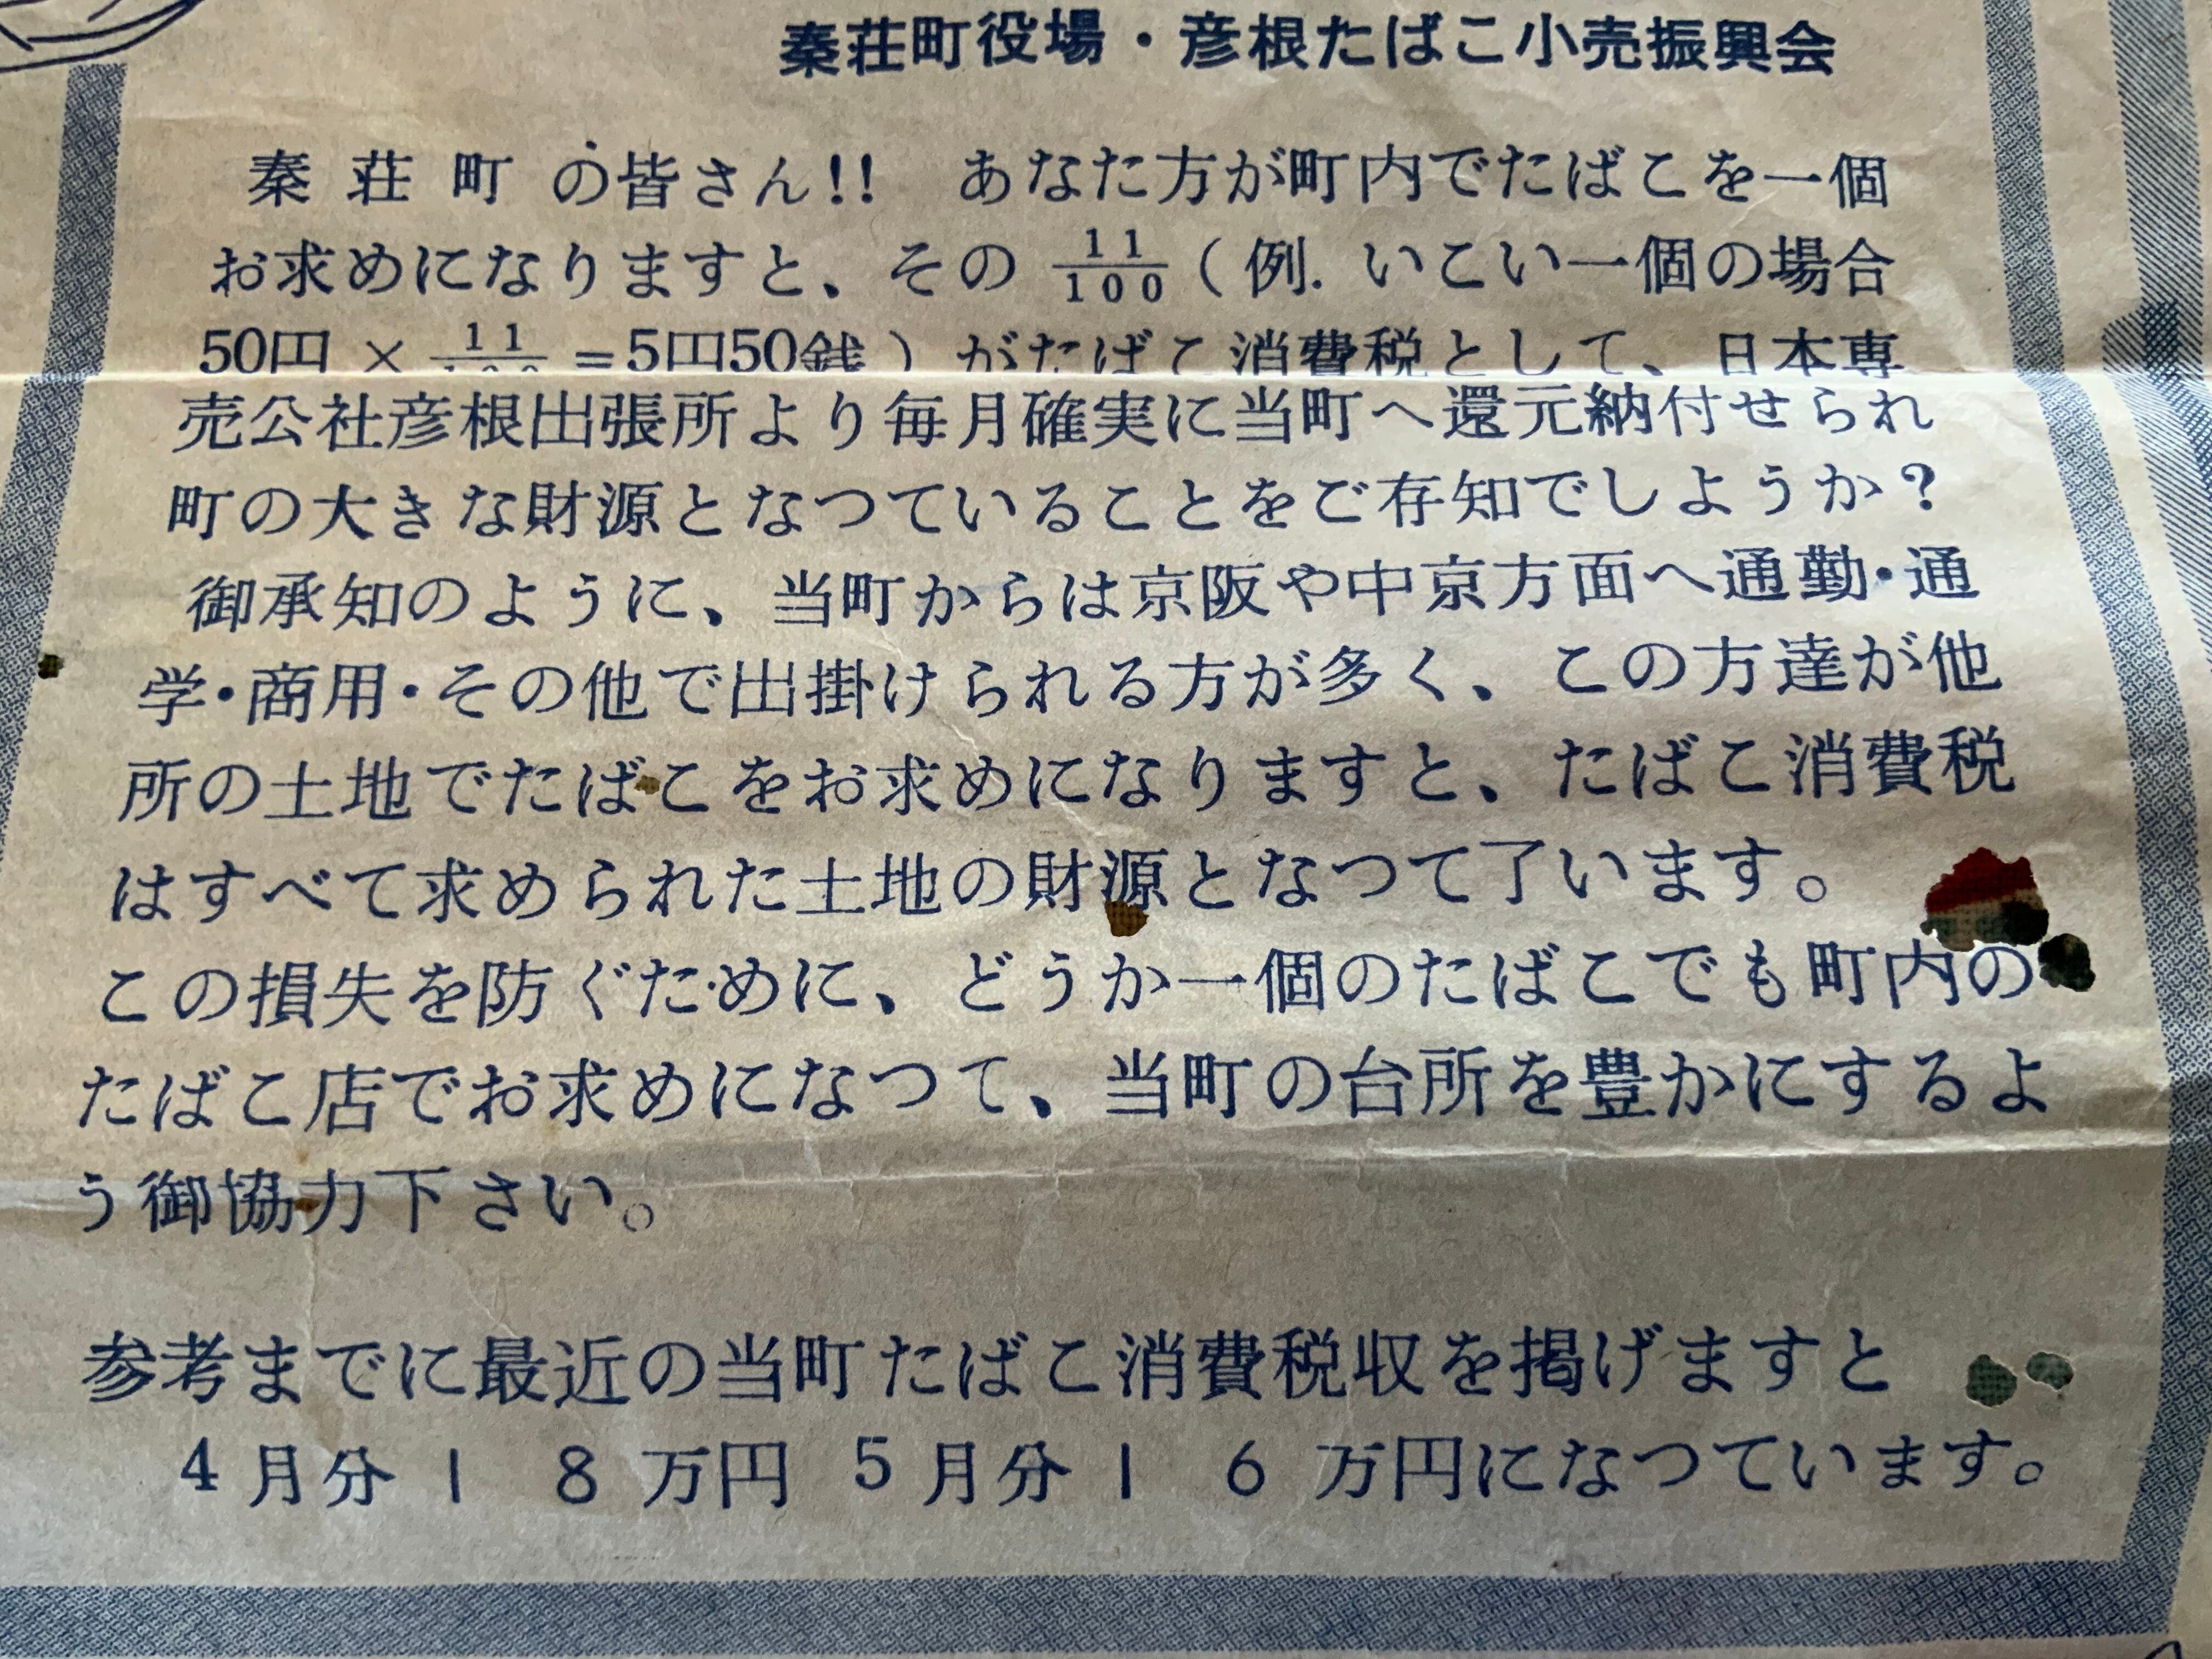 秦荘町役場・彦根たばこ小売振興会
秦荘町の皆さん!! あなた方が町内でたばこを一個
お求めになりますと、その 11/100 (例. いこい一個の場合
50円 × 11/100 =5円50銭) がたばこ消費税として、日本専
売公社彦根出張所より毎月確実に当町へ還元納付せられ
町の大きな財源となつていることをご存知でしようか?
御承知のように、当町からは京阪や中京方面へ通勤・通
学・商用・その他で出掛けられる方が多く、この方達が他
所の土地でたばこをお求めになりますと、たばこ消費税
はすべて求められた土地の財源となつて了います。
この損失を防ぐために、どうか一個のたばこでも町内の
たばこ店でお求めになつて、当町の台所を豊かにするよ
う御協力下さい。
参考までに最近の当町たばこ消費税収を掲げますと
4月分 1 8 万円 5月分 1 6 万円になつています。